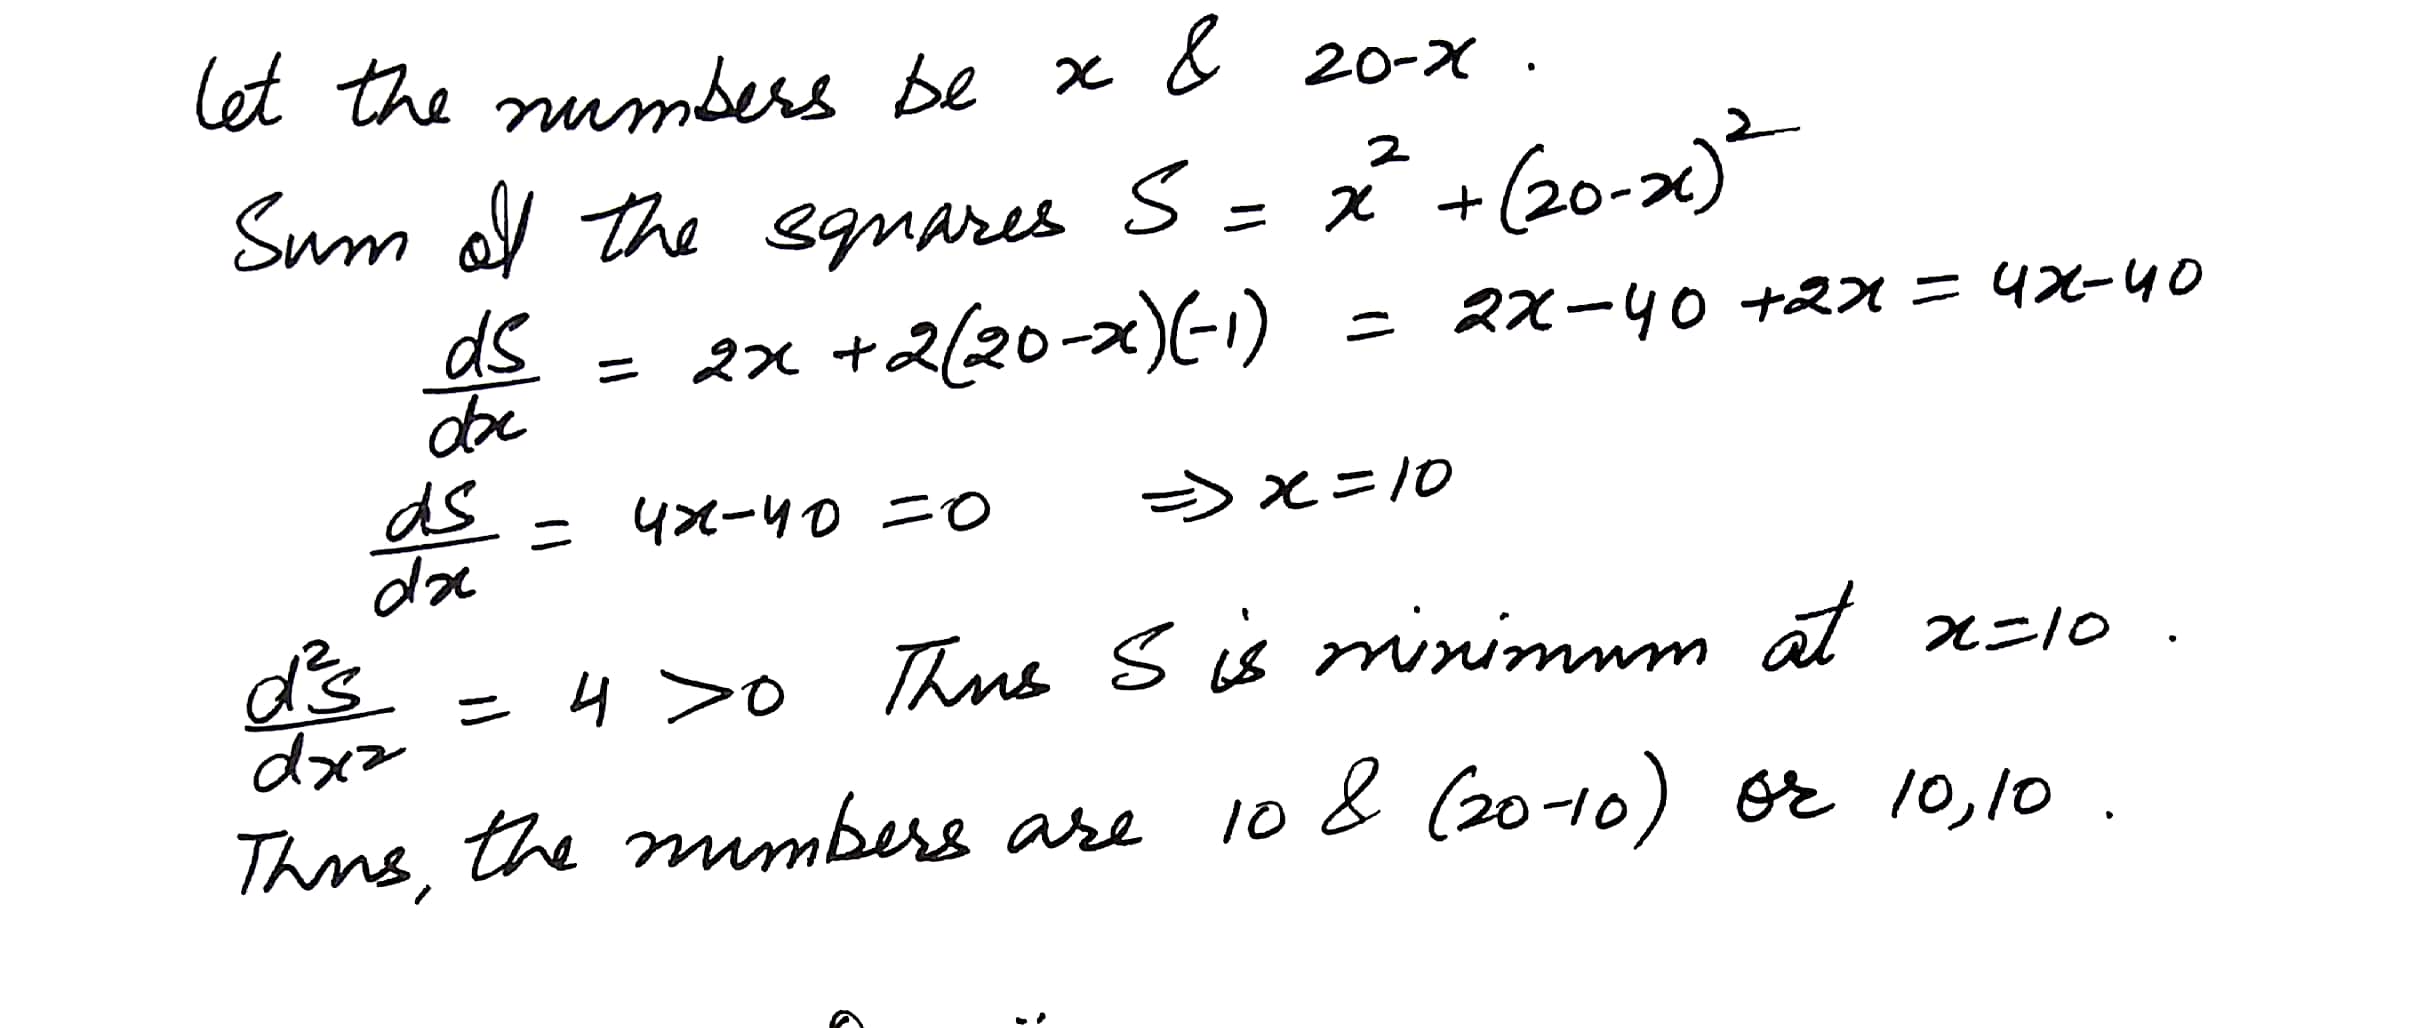 let the numbers be x & 20-x .
Sum of the squares S = x² + (20-x)²
dS/dx = 2x + 2(20-x)(-1) = 2x - 40 + 2x = 4x-40
dS/dx = 4x-40 = 0 ⇒ x = 10
d²S/dx² = 4 > 0 Thus S is minimum at x=10 .
Thus, the numbers are 10 & (20-10) or 10,10 .